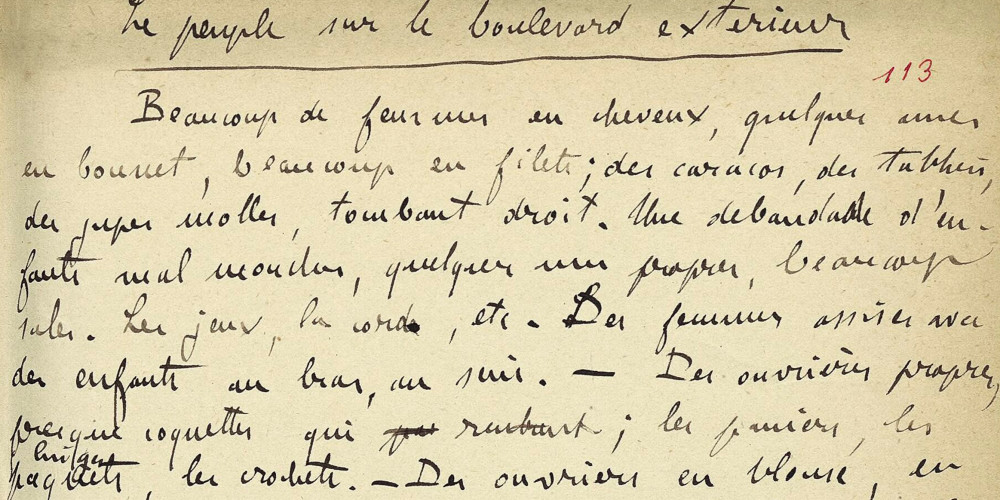 Le peuple sur le boulevard extérieur
113
Beaucoup de femmes en cheveux, quelques unes
en bonnet, beaucoup en filets; des caracos, des tabliers,
des jupes molles, tombant droit. Une débandade d'en-
fants mal mouchés, quelques uns propres, beaucoup
sales. Les jeux, la corde, etc. Des femmes assises avec
des enfants au bras, au sein. — Des ouvrières propres,
presque coquettes qui rentrent; les paniers, les
linges
paquets, les crochets. — Des ouvriers en blouse, en